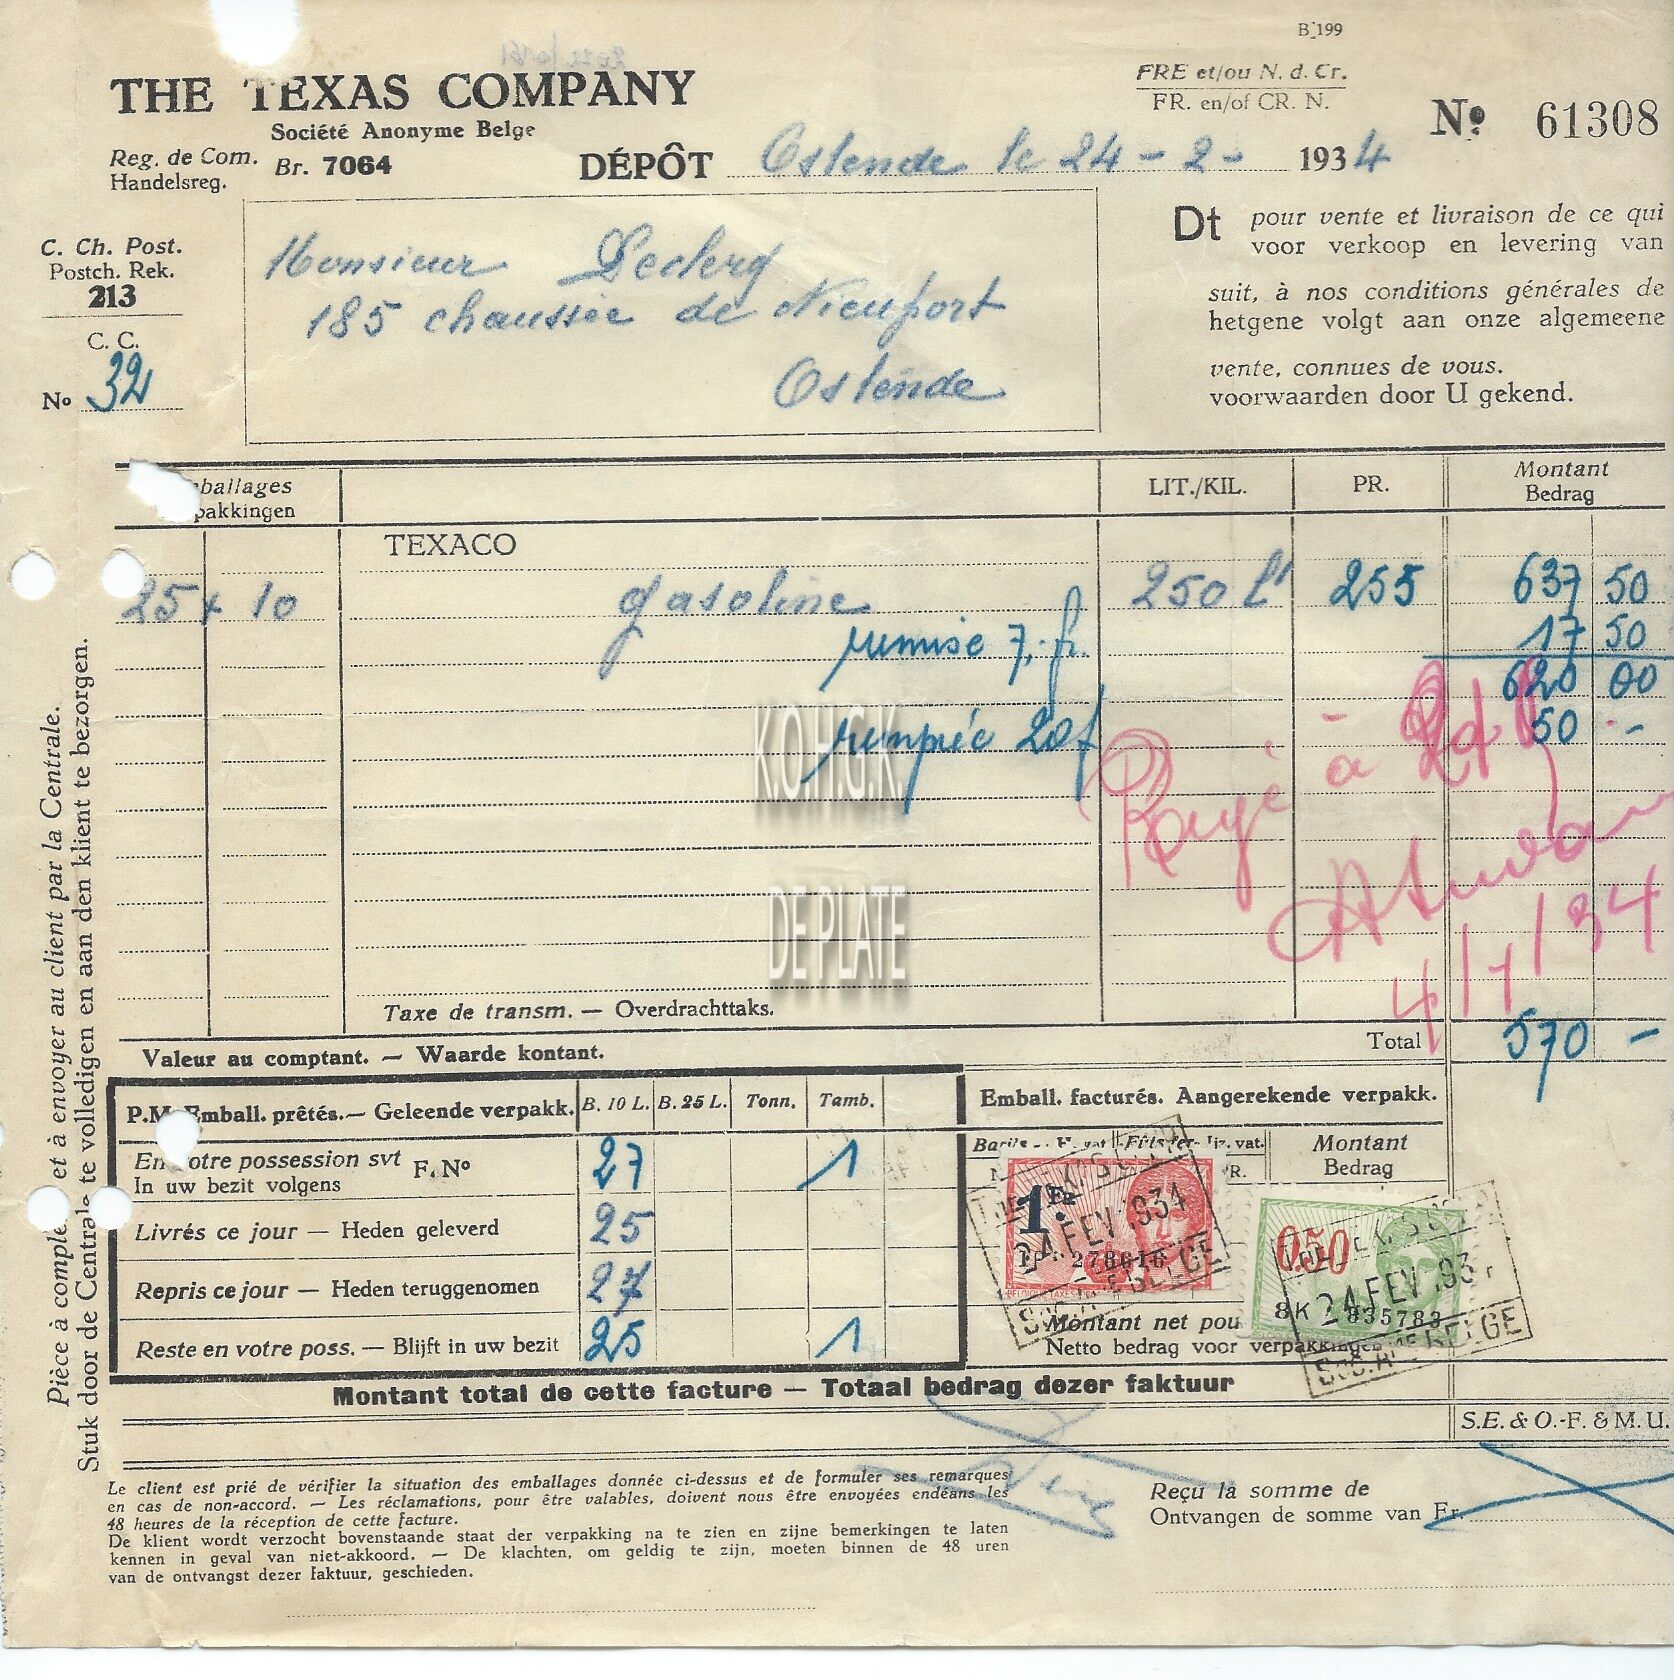 B.199
THE TEXAS COMPANY
Société Anonyme Belge
Reg. de Com.
Handelsreg.
Br. 7064
DÉPÔT Ostende le 24 - 2 - 1934
FRE et/ou N. d. Cr.
FR. en/of CR. N.
No. 61308
C. Ch. Post.
Postch. Rek.
213
C. C.
No 32
Monsieur Leclerq
185 chaussée de Nieuport
Ostende
Dt pour vente et livraison de ce qui
voor verkoop en levering van
suit, à nos conditions générales de
hetgene volgt aan onze algemeene
vente, connues de vous.
voorwaarden door U gekend.
ballages
pakkingen
LIT./KIL.
PR.
Montant
Bedrag
TEXACO
25 x 10 gasoline 250 Lt 255 637 50
remise 7,- fr. 17 50
620 00
20f 50 -
K.O.H.G.K.
DE PLATE
Payé à
4/1/34
Taxe de transm. — Overdrachttaks.
Valeur au comptant. — Waarde kontant.
Total 570 -
P.M. Emball. prêtés. — Geleende verpakk. B. 10 L. B. 25 L. Tonn. Tamb.
En votre possession svt F. No 27 1
In uw bezit volgens
Livrés ce jour — Heden geleverd 25
Repris ce jour — Heden teruggenomen 27
Reste en votre poss. — Blijft in uw bezit 25 1
Emball. facturés. Aangerekende verpakk.
Montant
Bedrag
1 Fr
24 FEV 1934
278616
0.50
24 FEV 193
8K 835783
BELGE
Montant net pou
Netto bedrag voor verpakkingen
Montant total de cette facture — Totaal bedrag dezer faktuur
S.E. & O.-F. & M.U.
Le client est prié de vérifier la situation des emballages donnée ci-dessus et de formuler ses remarques
en cas de non-accord. — Les réclamations, pour être valables, doivent nous être envoyées endéans les
48 heures de la réception de cette facture.
De klient wordt verzocht bovenstaande staat der verpakking na te zien en zijne bemerkingen te laten
kennen in geval van niet-akkoord. — De klachten, om geldig te zijn, moeten binnen de 48 uren
van de ontvangst dezer faktuur, geschieden.
Reçu la somme de
Ontvangen de somme van Fr.
Pièce à complé et à envoyer au client par la Centrale.
Stuk door de Centrale te volledigen en aan den klient te bezorgen.